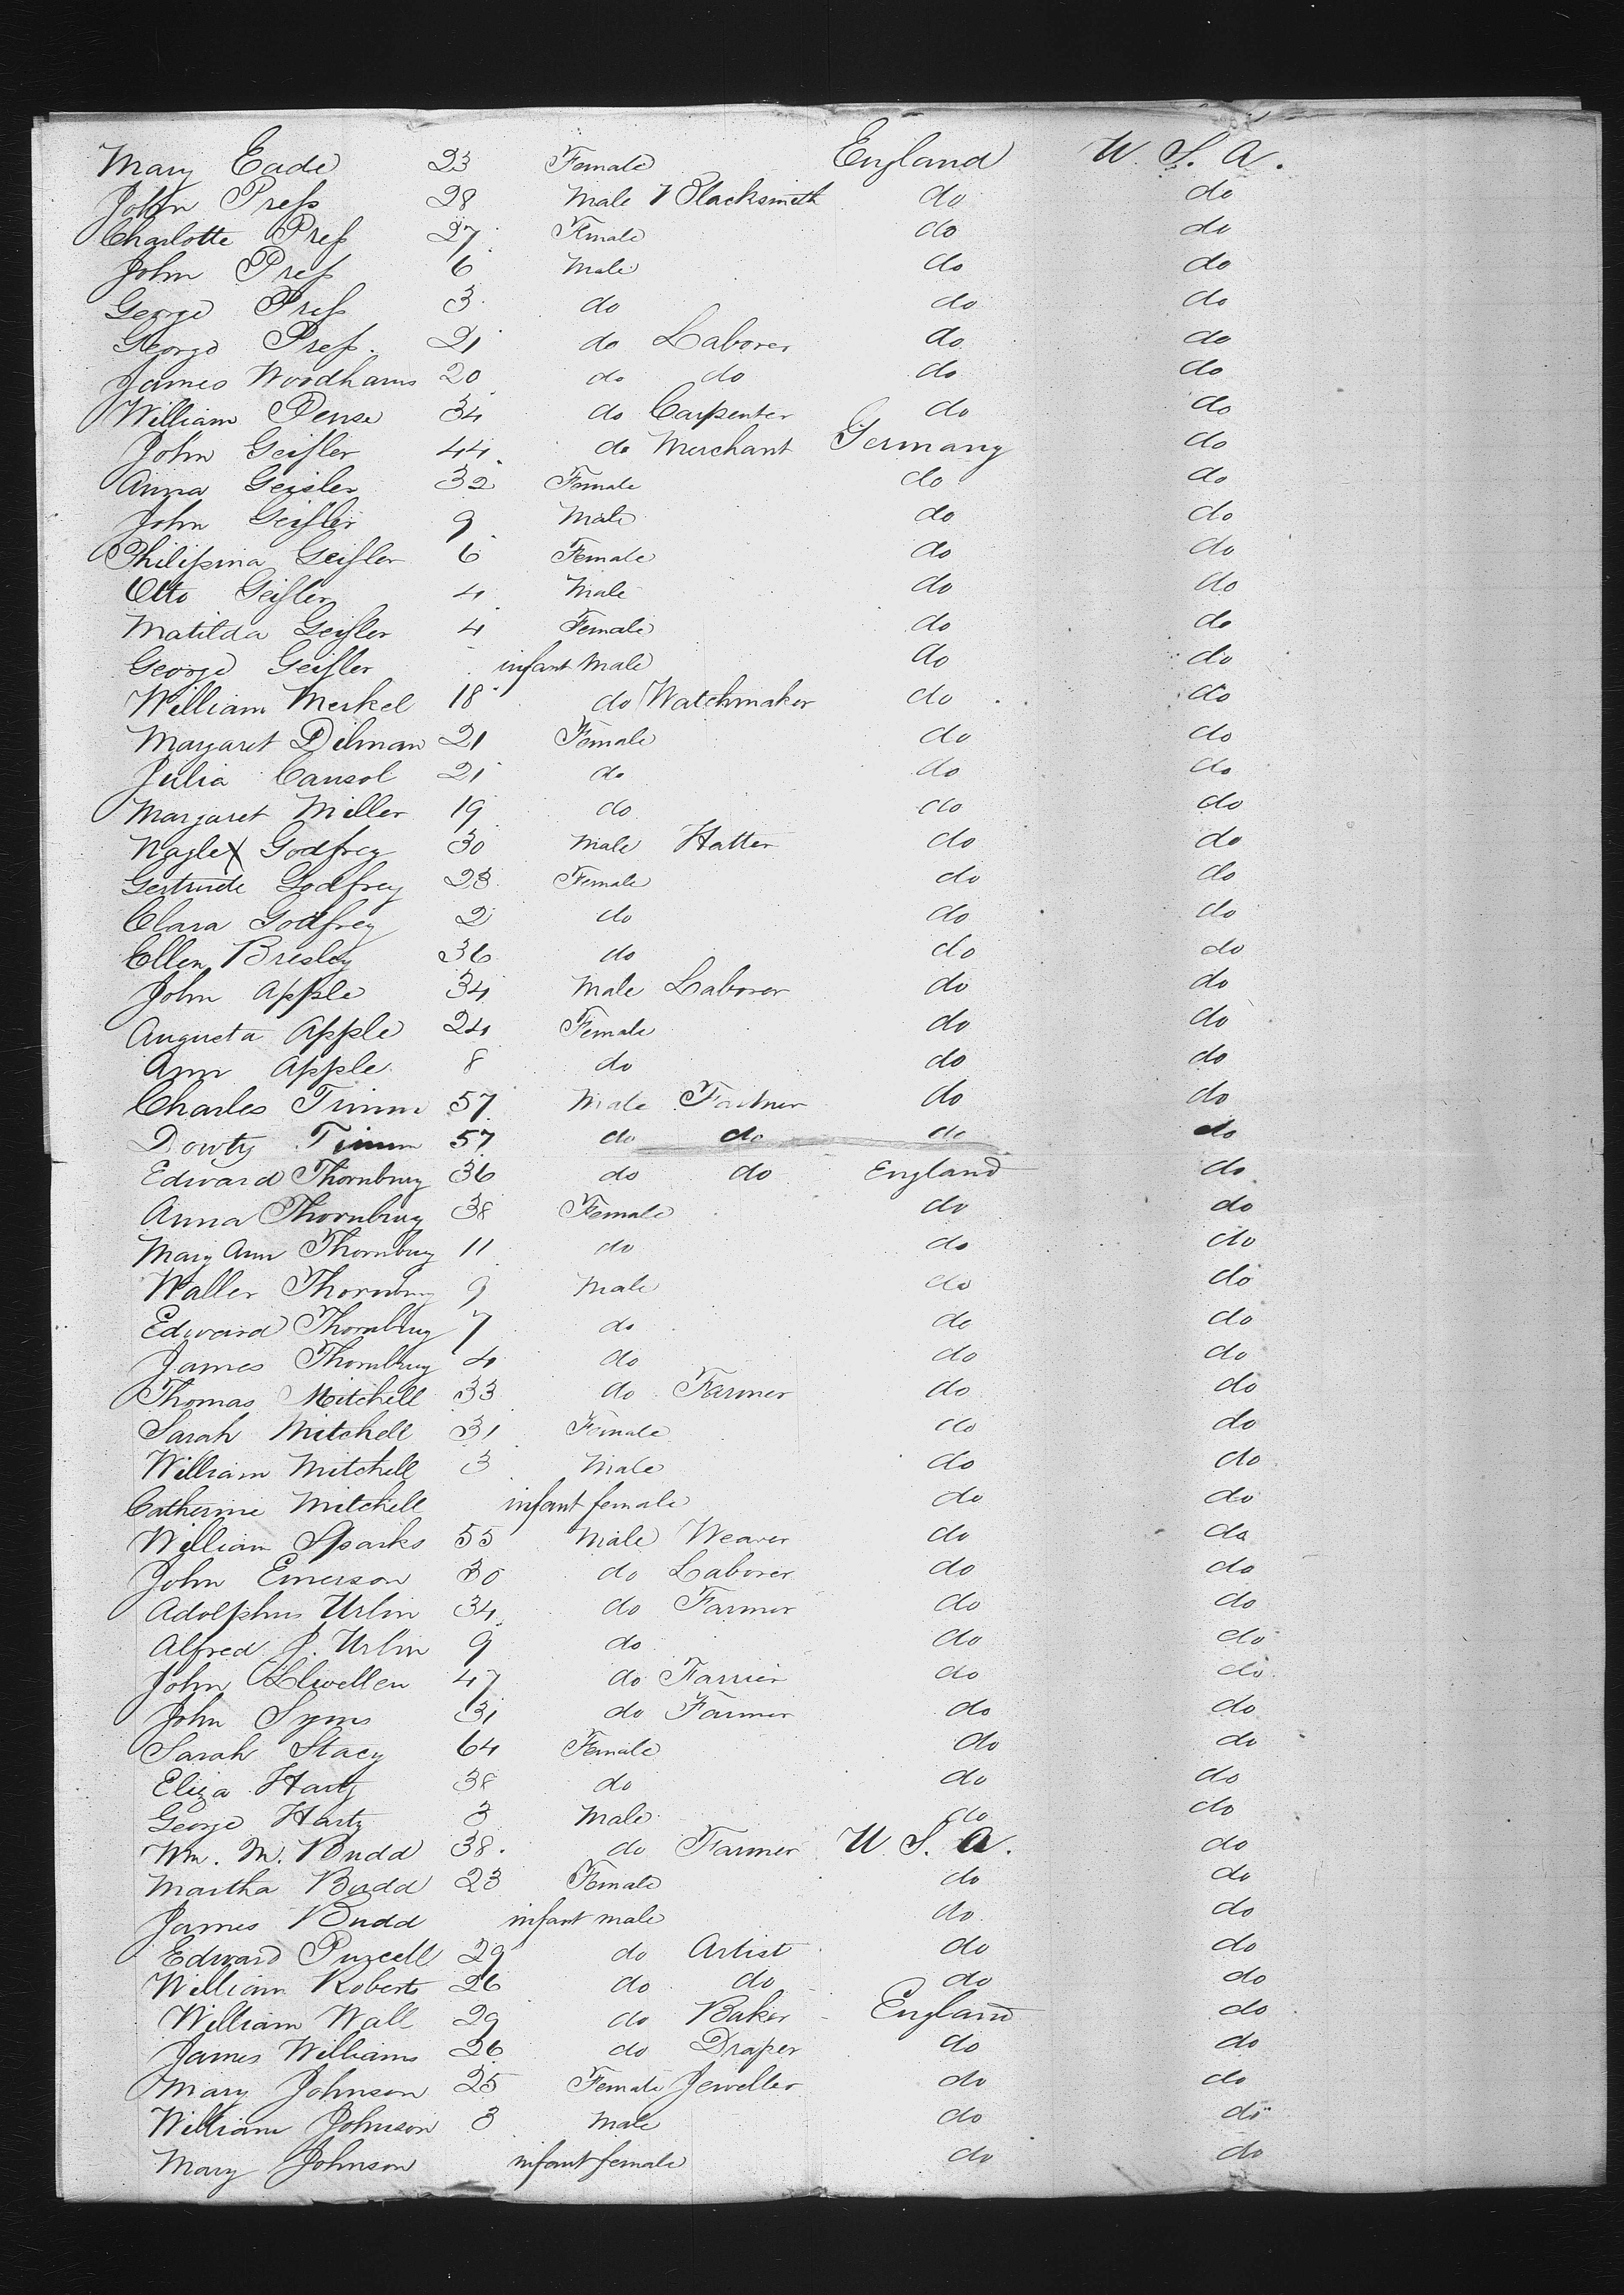 Mary Eade 23 Female England U. S. A.
John Press 28 Male Blacksmith do do
Charlotte Press 27 Female do do
John Press 6 Male do do
George Press 3 do do do
George Press. 21 do Laborer do do
James Woodhams 20 do do do do
William Dense 34 do Carpenter do do
John Geissler 44 do Merchant Germany do
Anna Geisler 32 Female do do
John Geissler 9 Male do do
Philipina Geissler 6 Female do do
Otto Geissler 4 Male do do
Matilda Geissler 4 Female do do
George Geissler infant Male do do
William Merkel 18 do Watchmaker do do
Margaret Dilman 21 Female do do
Julia Cansol 21 do do do
Margaret Miller 19 do do do
Nagle X Godfrey 30 Male Hatter do do
Gertrude Godfrey 23 Female do do
Clara Godfrey 2 do do do
Ellen Bresley 36 do do do
John Apple 34 Male Laborer do do
Augusta Apple 24 Female do do
Ann Apple 8 do do do
Charles Timm 57 Male Farmer do do
Dowty Timm 57 do do do do
Edward Thornbury 36 do do England do
Anna Thornbury 38 Female do do
Mary Ann Thornbury 11 do do do
Walter Thornbury 9 Male do do
Edward Thornbury 7 do do do
James Thornbury 4 do do do
Thomas Mitchell 33 do Farmer do do
Sarah Mitchell 31 Female do do
William Mitchell 3 Male do do
Catherine Mitchell infant female do do
William Sparks 55 Male Weaver do do
John Emerson 30 do Laborer do do
Adolphus Urlin 34 do Farmer do do
Alfred J. Urlin 9 do do do
John Llwellen 47 do Farrier do do
John Syms 31 do Farmer do do
Sarah Stacy 64 Female do do
Eliza Harty 38 do do do
George Harty 3 Male do do
Wm. M. Budd 38. do Farmer U. S. A. do
Martha Budd 23 Female do do
James Budd infant male do do
Edward Purcell 29 do Artist do do
William Roberts 26 do do do do
William Wall 29 do Baker England do
James Williams 26 do Draper do do
Mary Johnson 25 Female Jeweller do do
William Johnson 3 Male do do
Mary Johnson infant female do do